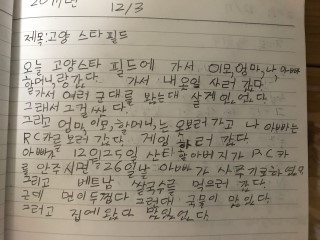 2019년 12/3
제목:고양 스타필드
오늘 고양스타 필드에 가서 이모,엄마,나,아빠
할머니랑 갔다. 가서 내 모일 사러 갔다
가서 여러 군대를 봤는대 살게 있었다.
그래서 그걸 샀다
그리고 엄마,이모,할머니,는 옷보러가고 나 아빠는
RC카를 보러 갔다. 게임 하러 갔다
아빠가 12월25일 산타 할아버지가 RC카
를 안주시면 26일날 아빠가 사주기로하였다
그리고 베트남 쌀국수를 먹으러 갔다.
근데 면이 두껍다 그런대 국물이 맛있다
그러고 집에 왔다 맛있었다.